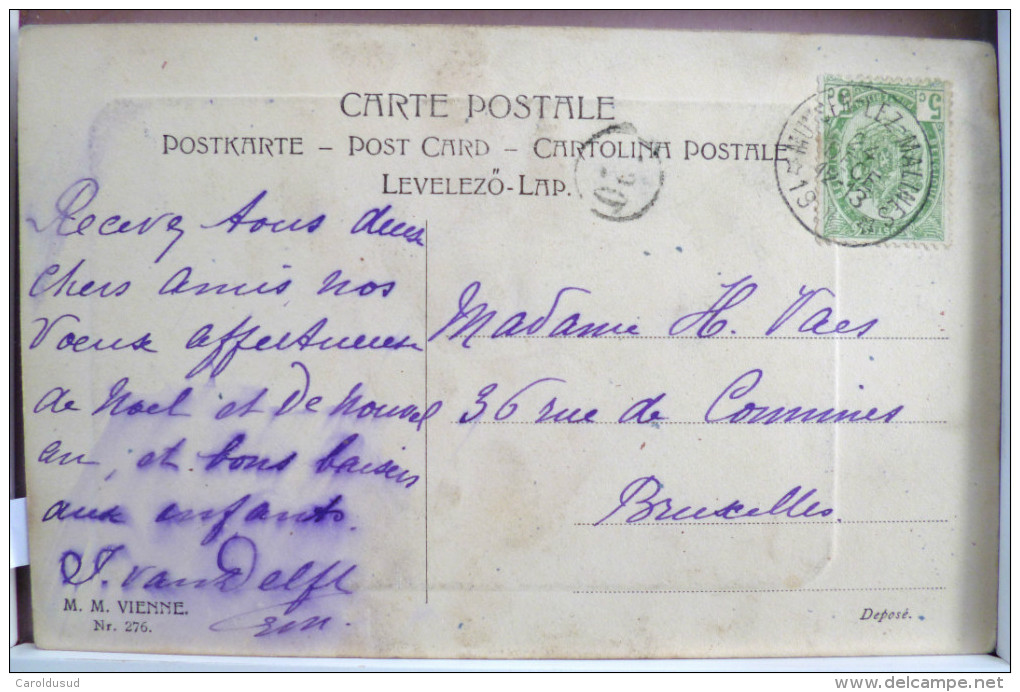 CARTE POSTALE
POSTKARTE – POST CARD – CARTOLINA POSTALE
LEVELEZŐ-LAP.
5 c
c 5
LEZ-MALINES
20
Recevez tous deux
chers amis nos
voeux affectueux
de Noel et de nouvel
an, et bons baisers
aux enfants.
J. van Delft
M. M. VIENNE.
Nr. 276.
Madame H. Vaes
36 rue de Commines
Bruxelles.
Deposé.
Caroldusud
delcampe.net